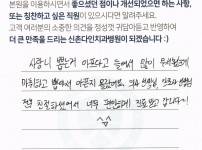 본원을 이용하시면서 좋으셨던 점이나 개선되었으면 하는 사항,
또는 칭찬하고 싶은 직원이 있으시다면 알려주세요.
고객 여러분의 소중한 의견을 정성껏 귀담아듣고 반영하여
더 큰 만족을 드리는 신촌다인치과병원이 되겠습니다 :)
사랑니 뽑는거 아프다고 들어서 많이 무서웠는데
마취하고 뽑아서 아픈지 몰랐어요. 의사 선생님, 간호사 선생님
전부 친절하셔서 너무 편안하게 진료받고 갑니다!
^^